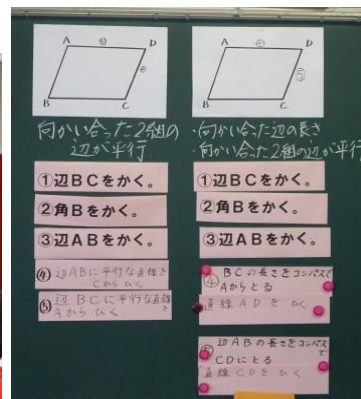 A
D
B
C
向かい合った2組の
辺が平行
①辺BCをかく。
②角Bをかく。
③辺ABをかく。
④辺ABに平行な直線を
Cからひく
⑤辺BCに平行な直線を
Aからひく
A
D
B
C
・向かい合った辺の長さ
・向かい合った2組の辺が平行
①辺BCをかく。
②角Bをかく。
③辺ABをかく。
④BCの長さをコンパスで
Aからとる
直線ADをひく
辺ABの長さをコンパスで
CDにとる
直線CDをひく